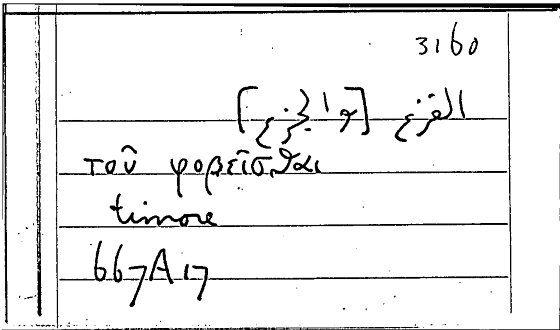 3160
الفزع [والجزع]
τοῦ φοβεῖσθαι
timore
667A17